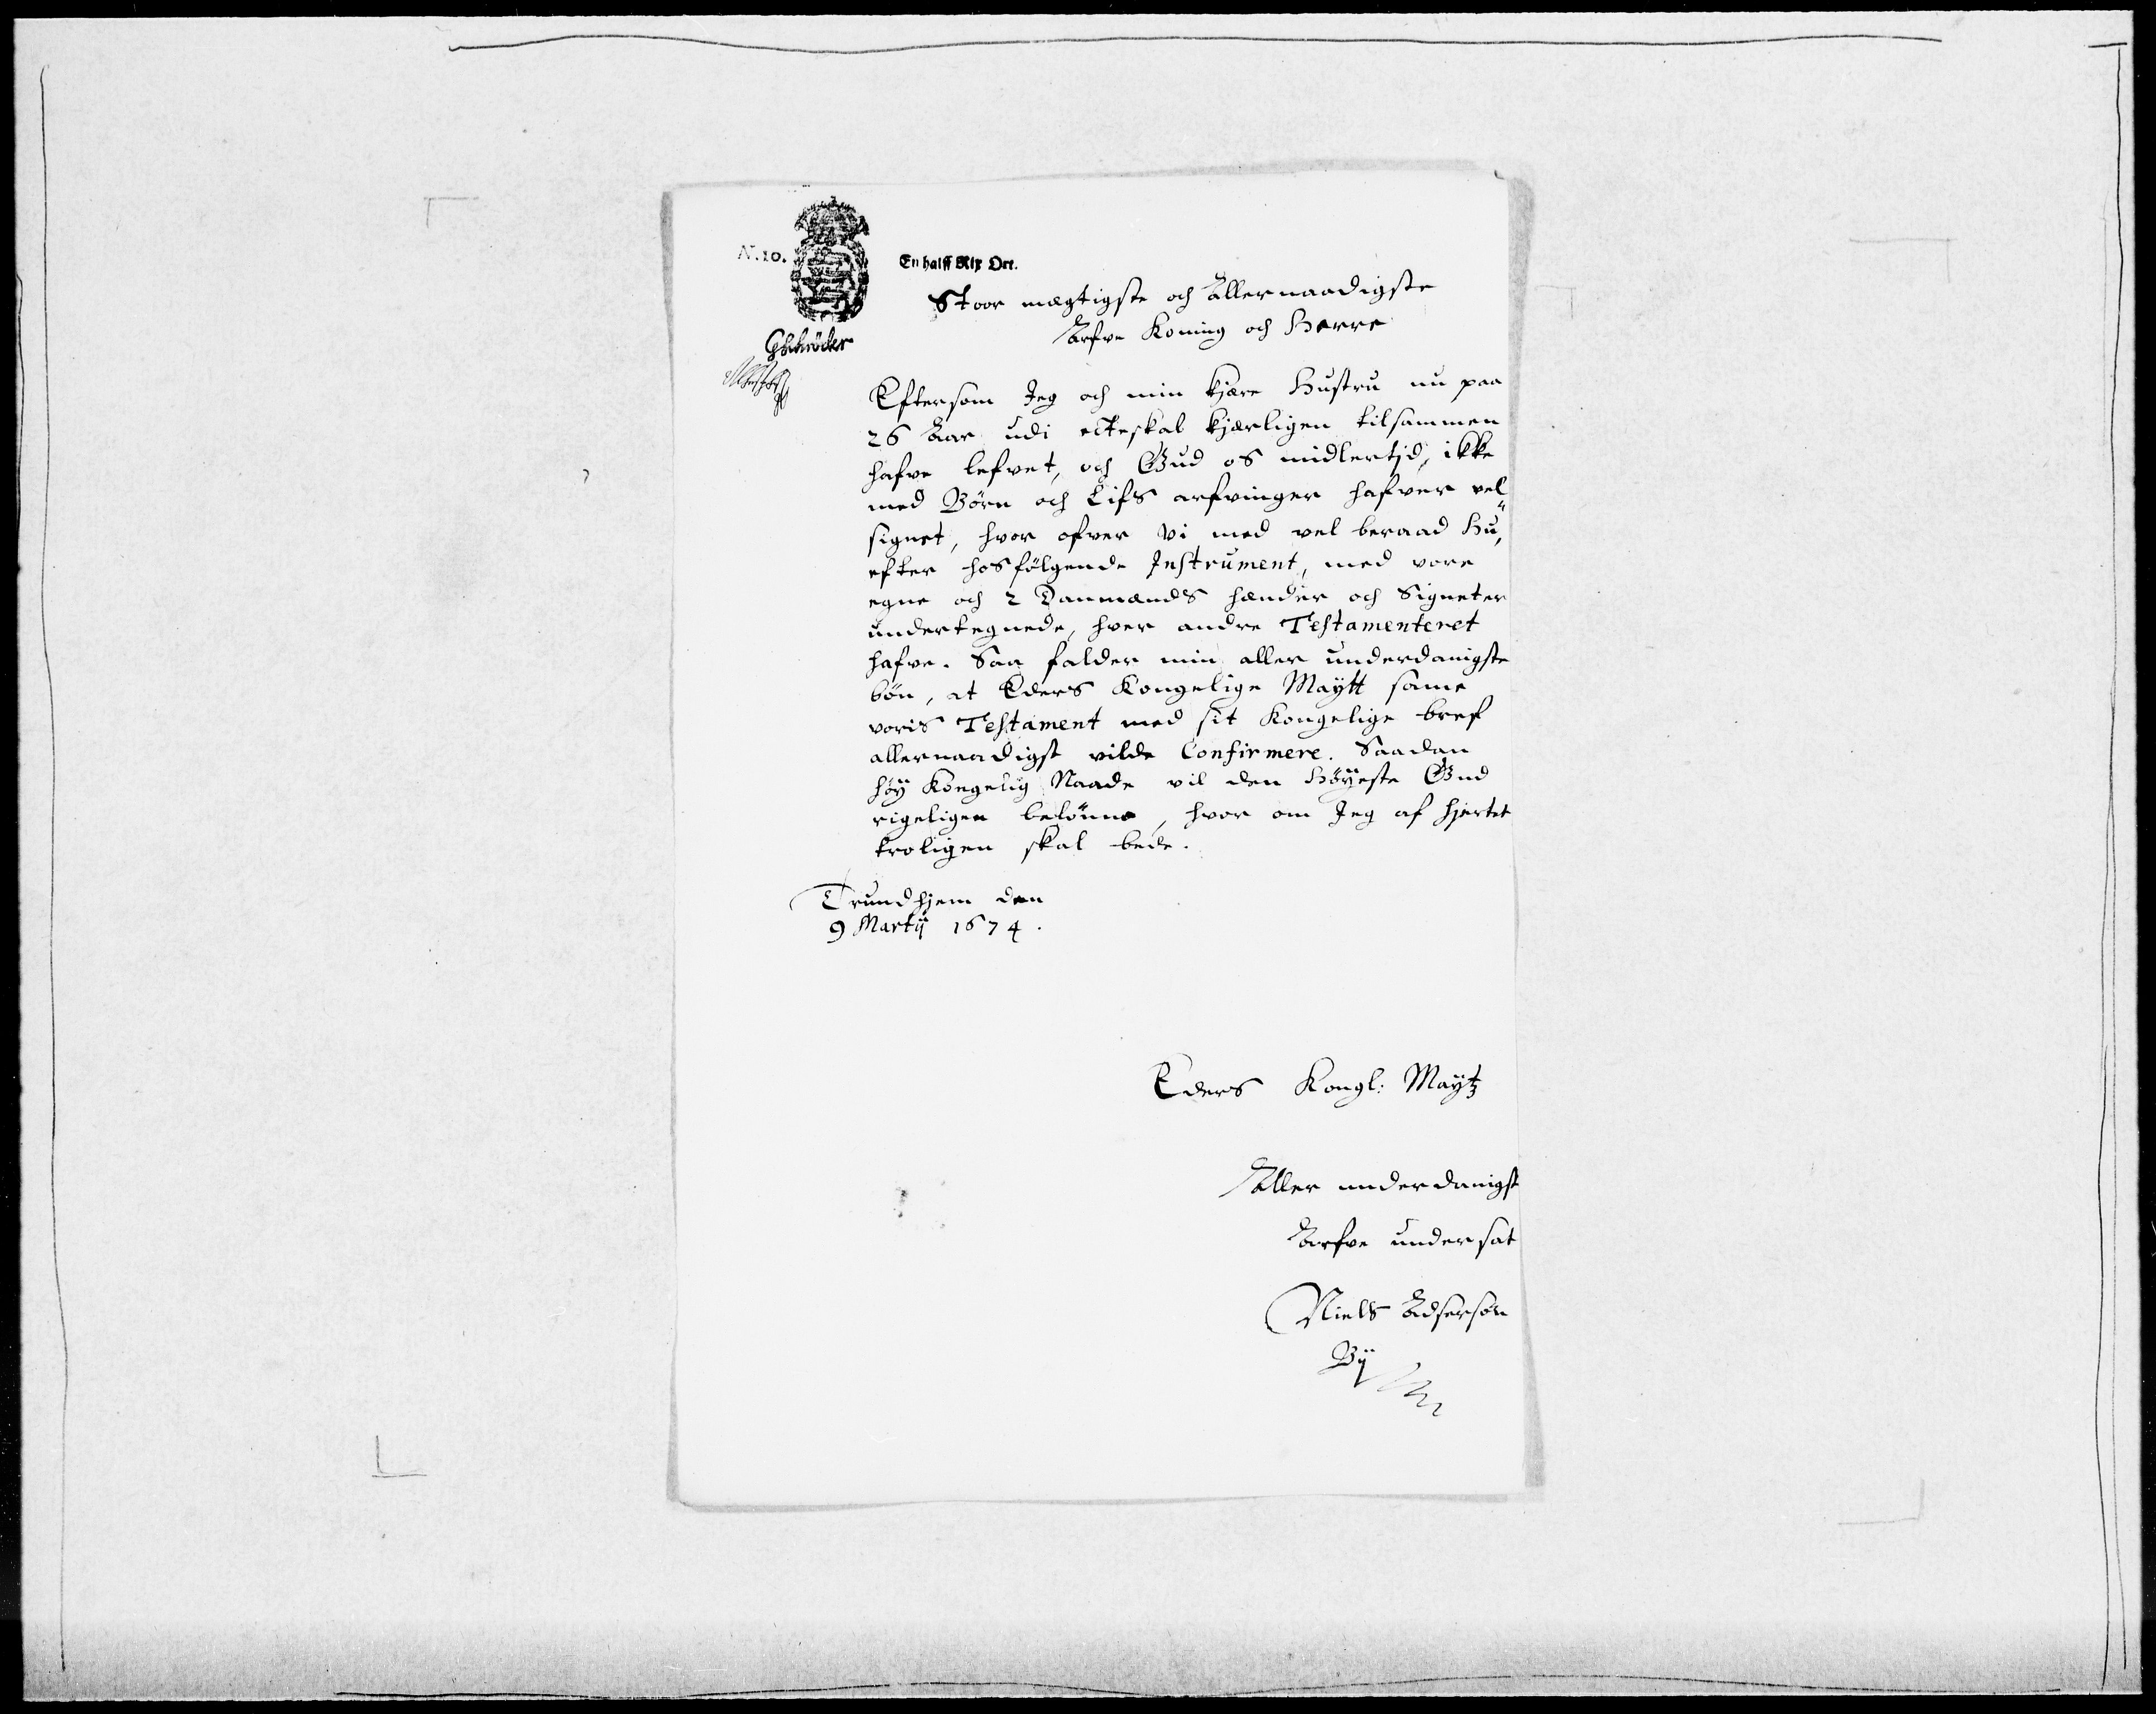 N. 10.
En halff Rix Ort.
Stoor mægtigste och Allernaadigste
Arfve Koning och Herre
GSchröder
Eftersom Jeg och min kjære Hustru nu paa
26 Aar udi ecteskab kjærligen tilsammen
hafve lefvet, och Gud os midlertjd, ikke
med Börn och Lifs arfvinger hafver vel„
signet, hvor ofver Vi med vel beraad Hu,
efter hosfölgende Instrument, med vore
egne och 2 Danmænds hænder och Signeter
undertegnede, hver andre Testamenteret
hafve. Saa falder min aller underdanigste
bön, at Eders Kongelige Maÿtt same
voris Testament med sit Kongelige bref
allernaadigst vilde Confirmere. Saadan
höÿ Kongelig Naade vil den Höÿeste Gud
rigeligen belönne, hvor om Jeg af hjertet
troligen skal bede.
Trundhjem den
9 Martÿ 1674.
Eders Kongl: Maÿtz
Aller underdanigst
Arfve undersat
Niels Adserson
Bÿ